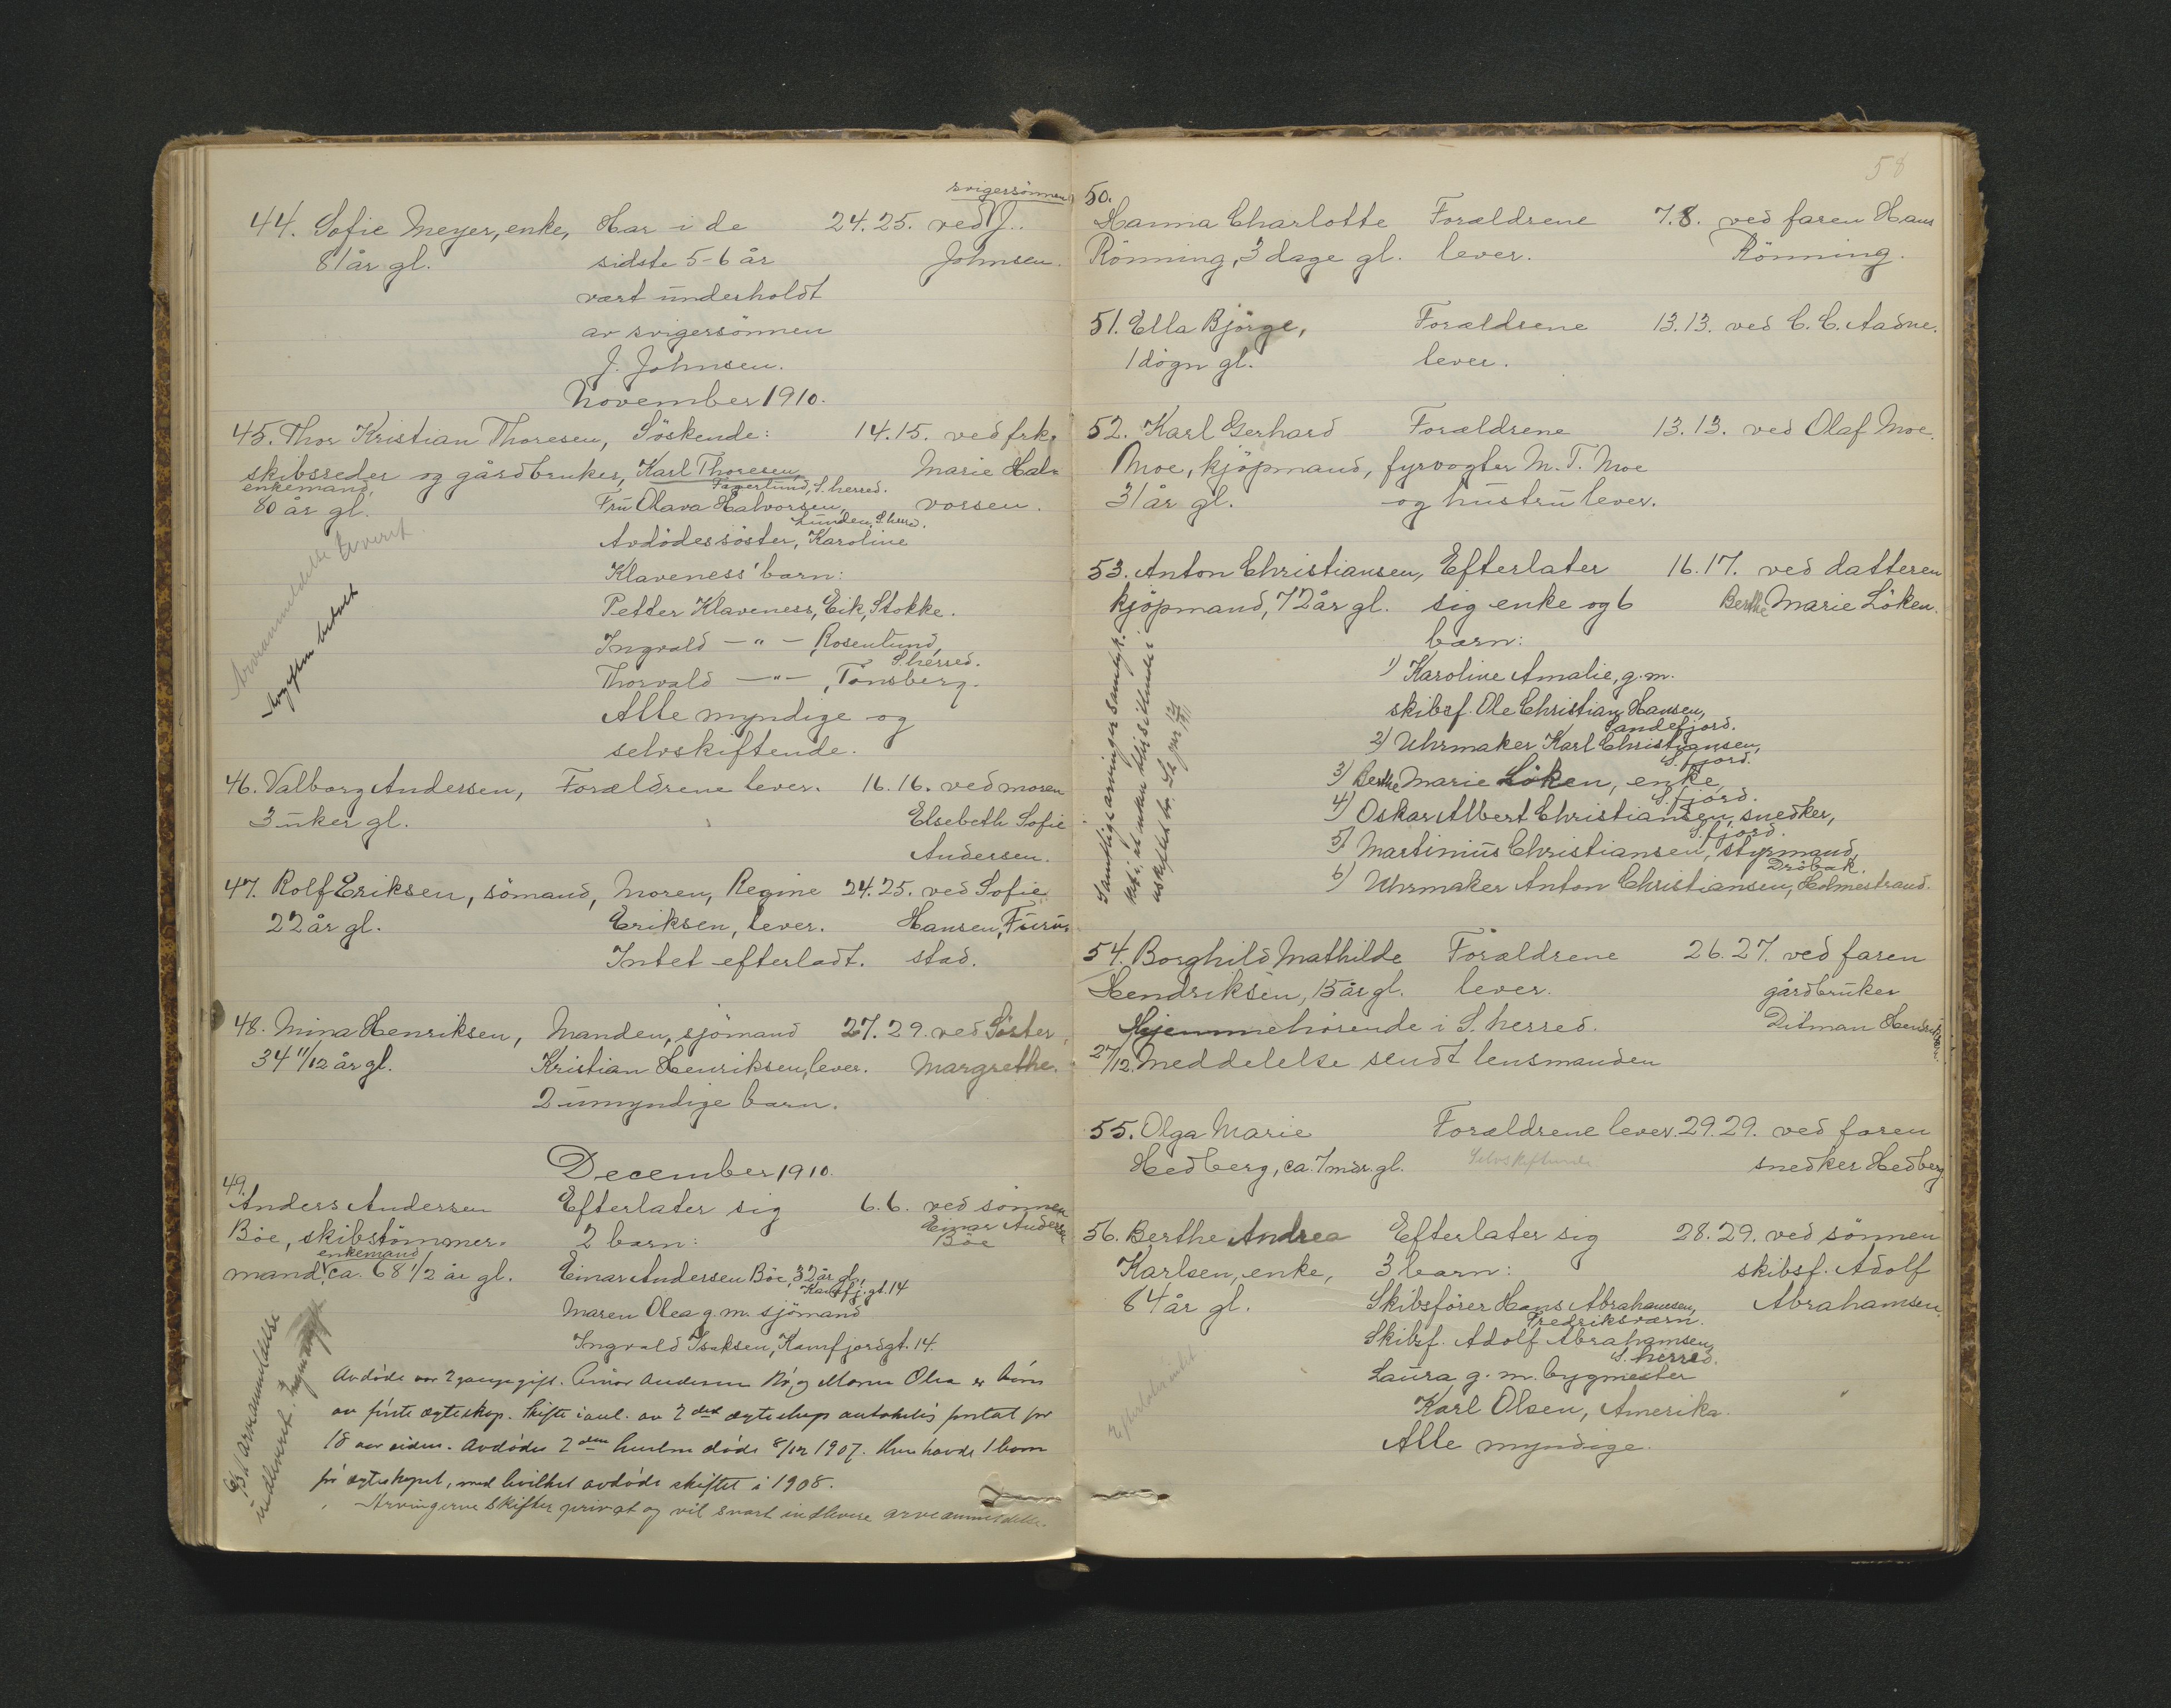 svigersönnen
44. Sofie Meyer, enke, Har i de 24. 25. ved J.
81 år gl. sidste 5-6 år Johnsen.
vært underholdt
av svigersönnen
J. Johnsen.
November 1910.
45. Thor Kristian Thoresen, Söskende: 14. 15. ved frk.
skibsreder og gårdbruker, Karl Thoresen, Marie Hal-
enkemand, Fagerlund, S. herred.
80 år gl. Fru Olava Halvorsen, vorsen.
Lunden, S. herred.
Avdödes söster, Karoline
Klaveness' barn:
Petter Klaveness, Eik, Stokke.
Ingvald —"— Rosenlund,
S. herred.
Thorvald —"—, Tönsberg.
Alle myndige og
selvskiftende.
Arveanmeldelse leveret.
Avgiften betalt
46. Valborg Andersen, Forældrene lever. 16. 16. ved moren
3 uker gl. Elsebeth Sofie
Andersen.
47. Rolf Eriksen, sömand, Moren, Regine 24. 25. ved Sofie
22 år gl. Eriksen, lever. Hansen, Furu-
Intet efterladt. stad.
48. Mina Henriksen, Manden, sjömand 27. 29. ved Söster
34 11/12 år gl. Kristian Henriksen, lever. Margrethe.
2 umyndige barn.
December 1910.
49.
Anders Andersen Efterlater sig 6. 6. ved sönnen
Böe, skibstömmer- 2 barn: Einar Andersen
Böe
enkemand
mand, ca. 68 1/2 år gl. Einar Andersen Böe, 32 år gl.,
Kamfj. gt. 14
Maren Olea g. m. sjömand
Ingvald Isaksen, Kamfjordgt. 14.
Avdöde var 2 gange gift. Einar Andersen Bö og Maren Olea er börn
av förste ægteskap. Skifte i anl. av 2det ægteskap
18 aar siden. Avdödes 2den hustru döde 8/12 1907. Hun havde 1 barn
för ægteskapet, med hvilket avdöde skiftet i 1908.
Arvingerne skifter privat og vil snart indlevere arveanmeldelse.
arveanmeldelse
indleveret.
58
50.
Hanna Charlotte Forældrene 7. 8. ved faren Hans
Rönning, 3 dage gl. lever. Rönning.
51. Ella Björge, Forældrene 13. 13. ved C. C. Aadne.
1 dögn gl. lever.
52. Karl Gerhard Forældrene 13. 13. ved Olaf Moe.
Moe, kjöpmand, fyrvogter M. T. Moe
31 år gl. og hustru lever.
53. Anton Christiansen, Efterlater 16. 17. ved datteren
kjöpmand, 72 år gl. sig enke og 6 Berthe Marie Löken.
barn:
1) Karoline Amalie, g. m.
skibsf. Ole Christian Hansen,
Sandefjord.
2) Uhrmaker Karl Christiansen,
S. fjord.
3) Berthe Marie Löken, enke,
S. fjord.
4) Oskar Albert Christiansen, snedker,
S. fjord.
5) Martinius Christiansen, styrmand,
Dröbak.
6) Uhrmaker Anton Christiansen, Holmestrand.
Samtlige arvinger samtyk-
ket i, at enken blir sittende i
uskiftet bo.
54. Borghild Mathilde Forældrene 26. 27. ved faren
Hendriksen, 15 år gl. lever. gårdbruker
Hjemmehörende i S. herred. Ditman Hendriksen.
27/12. Meddelelse sendt lensmanden
55. Olga Marie Forældrene lever. 29. 29. ved faren
Hedberg, ca. 7 mdr. gl. Selvskiftende snedker Hedberg
56. Berthe Andrea Efterlater sig 28. 29. ved sönnen
Karlsen, enke, 3 barn: skibsf. Adolf
84 år gl. Skibsförer Hans Abrahamsen, Abrahamsen.
Fredriksværn.
Skibsf. Adolf Abrahamsen,
S. herred.
Laura g. m. bygmester
Karl Olsen, Amerika.
Alle myndige.
Efterlater intet